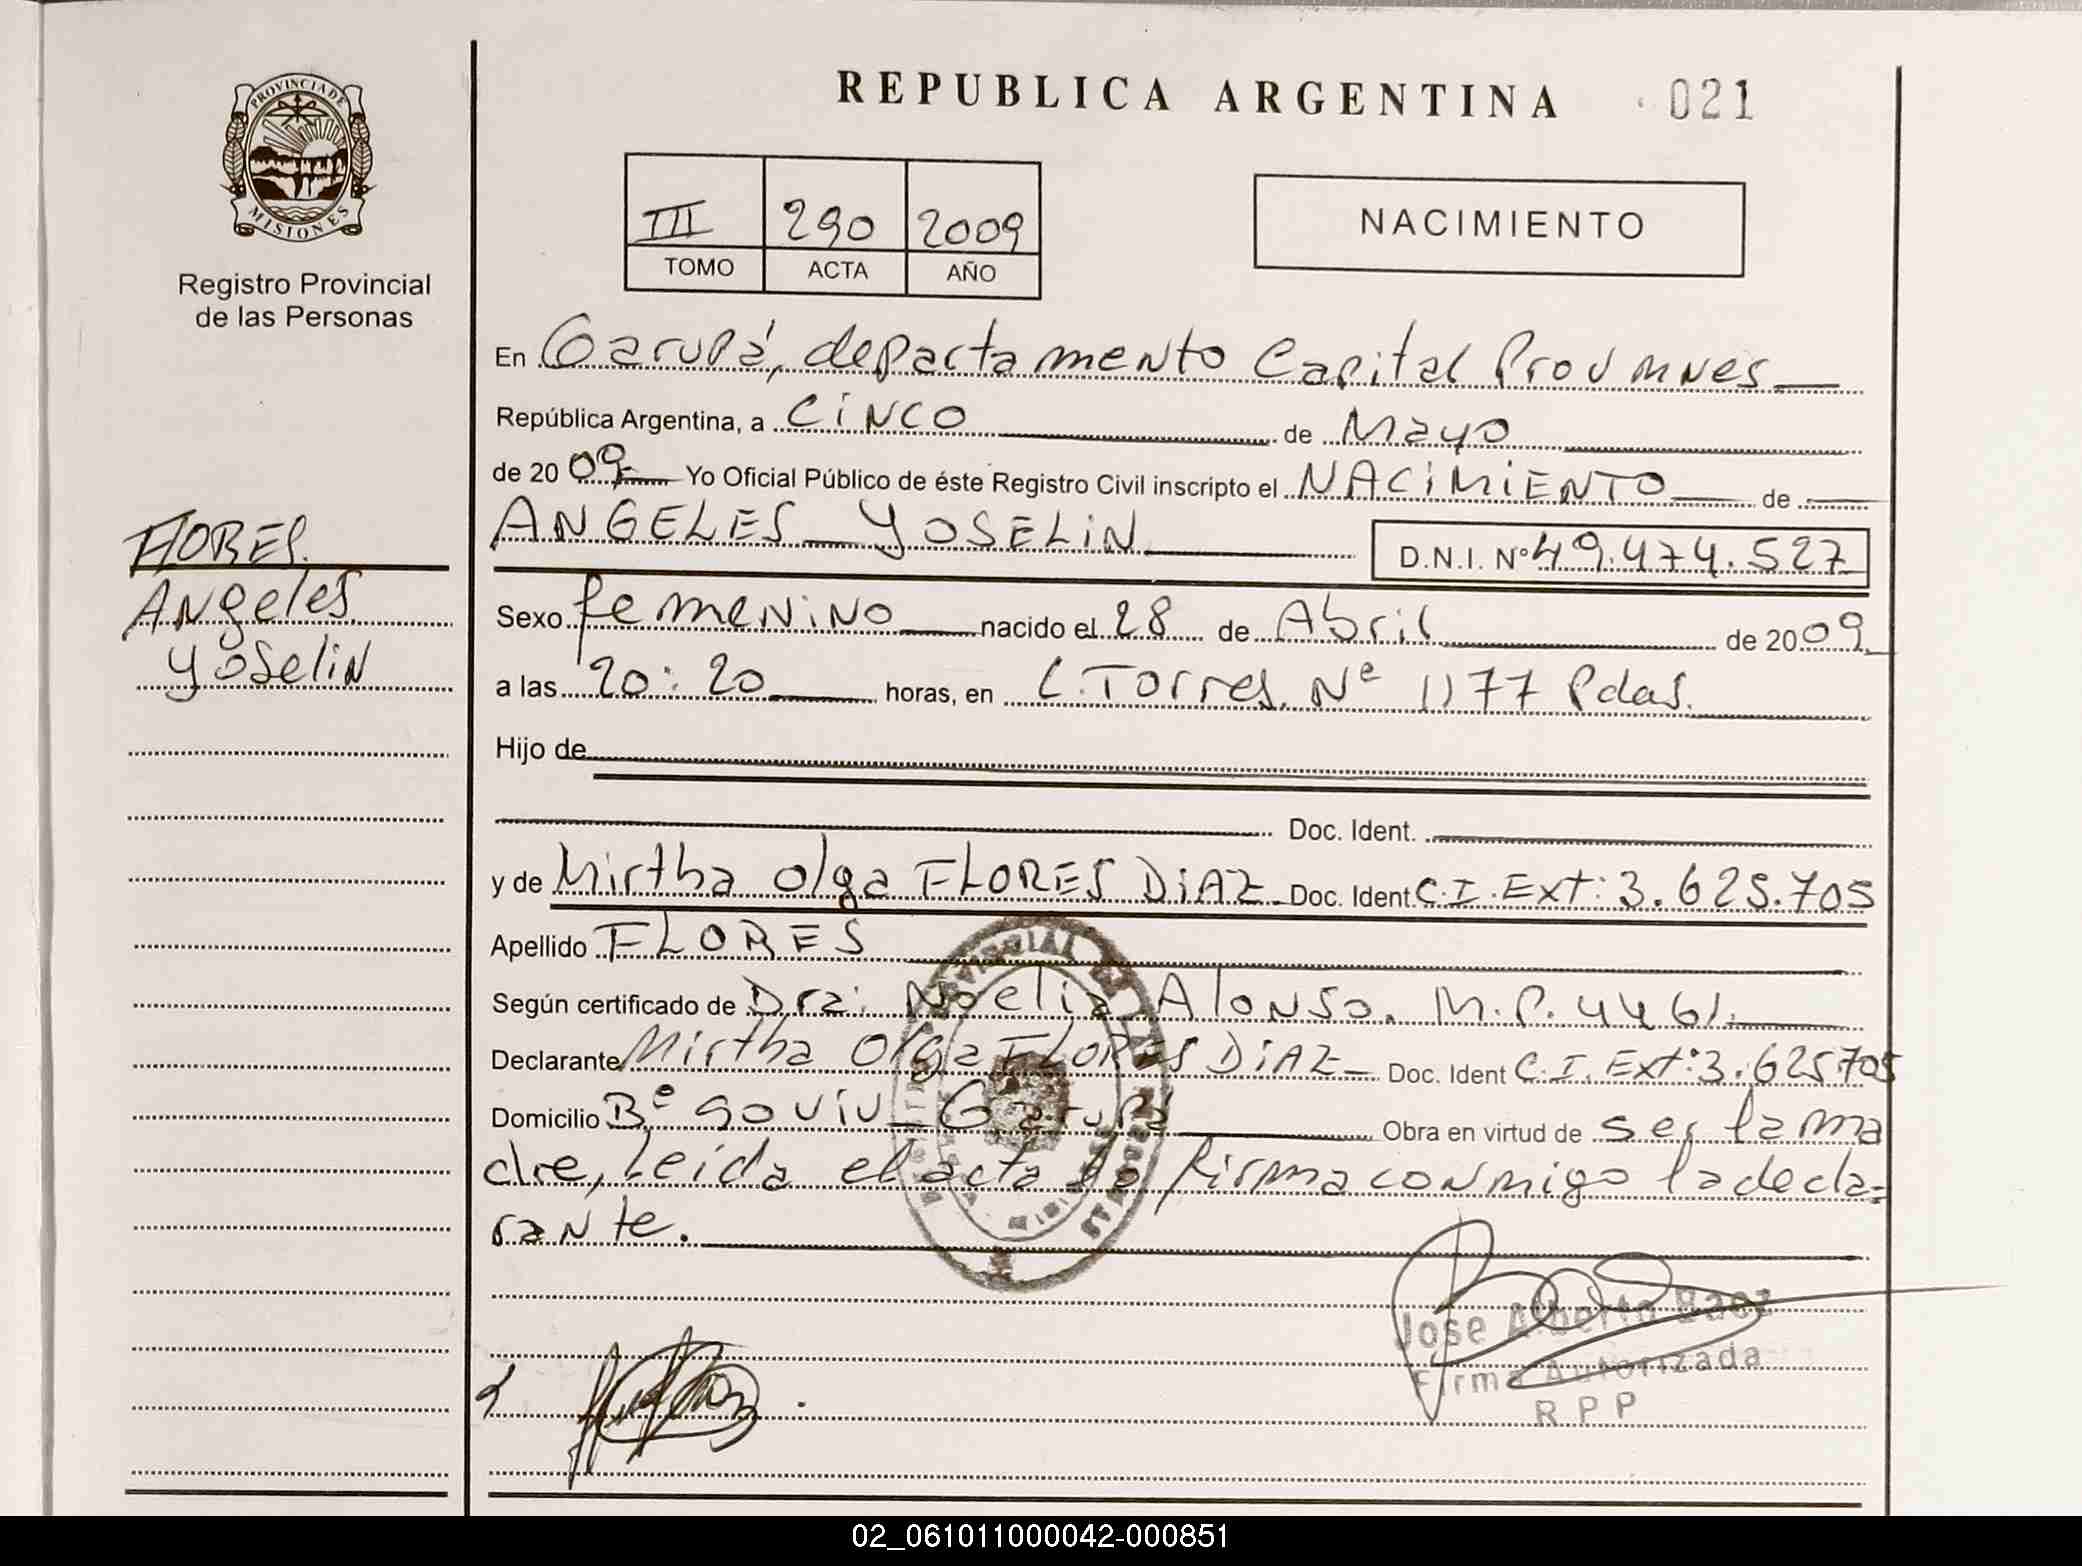 REPUBLICA ARGENTINA 021
PROVINCIA DE MISIONES
Registro Provincial
de las Personas
III 290 2009
TOMO ACTA AÑO
NACIMIENTO
En Garupá, departamento Capital Prov mnes
República Argentina, a CiNCO de Mayo
de 2009 Yo Oficial Público de éste Registro Civil inscripto el NACiMiENTO de
ANGELES YOSELiN D.N.I. Nº 49.474.527
FLORES
Angeles
Yoselin
Sexo femeNiNo nacido el 28 de Abril de 2009
a las 20:20 horas, en C. Torres Nº 1177 Pdas.
Hijo de
Doc. Ident.
y de Mirtha Olga FLORES DiAZ Doc. Ident C.I. Ext: 3.625.705
Apellido FLORES
Según certificado de Dra: Noelia Alonso. M.P. 4461.
Declarante Mirtha Olga FLORES DiAZ Doc. Ident C.I. Ext: 3.625.705
Domicilio Bº 90 viv Garupá Obra en virtud de ser la ma
dre, Leida el acta la firma conmigo la decla=
rante.
Jose Alberto Baez
Firma Autorizada
R P P
02_061011000042-000851